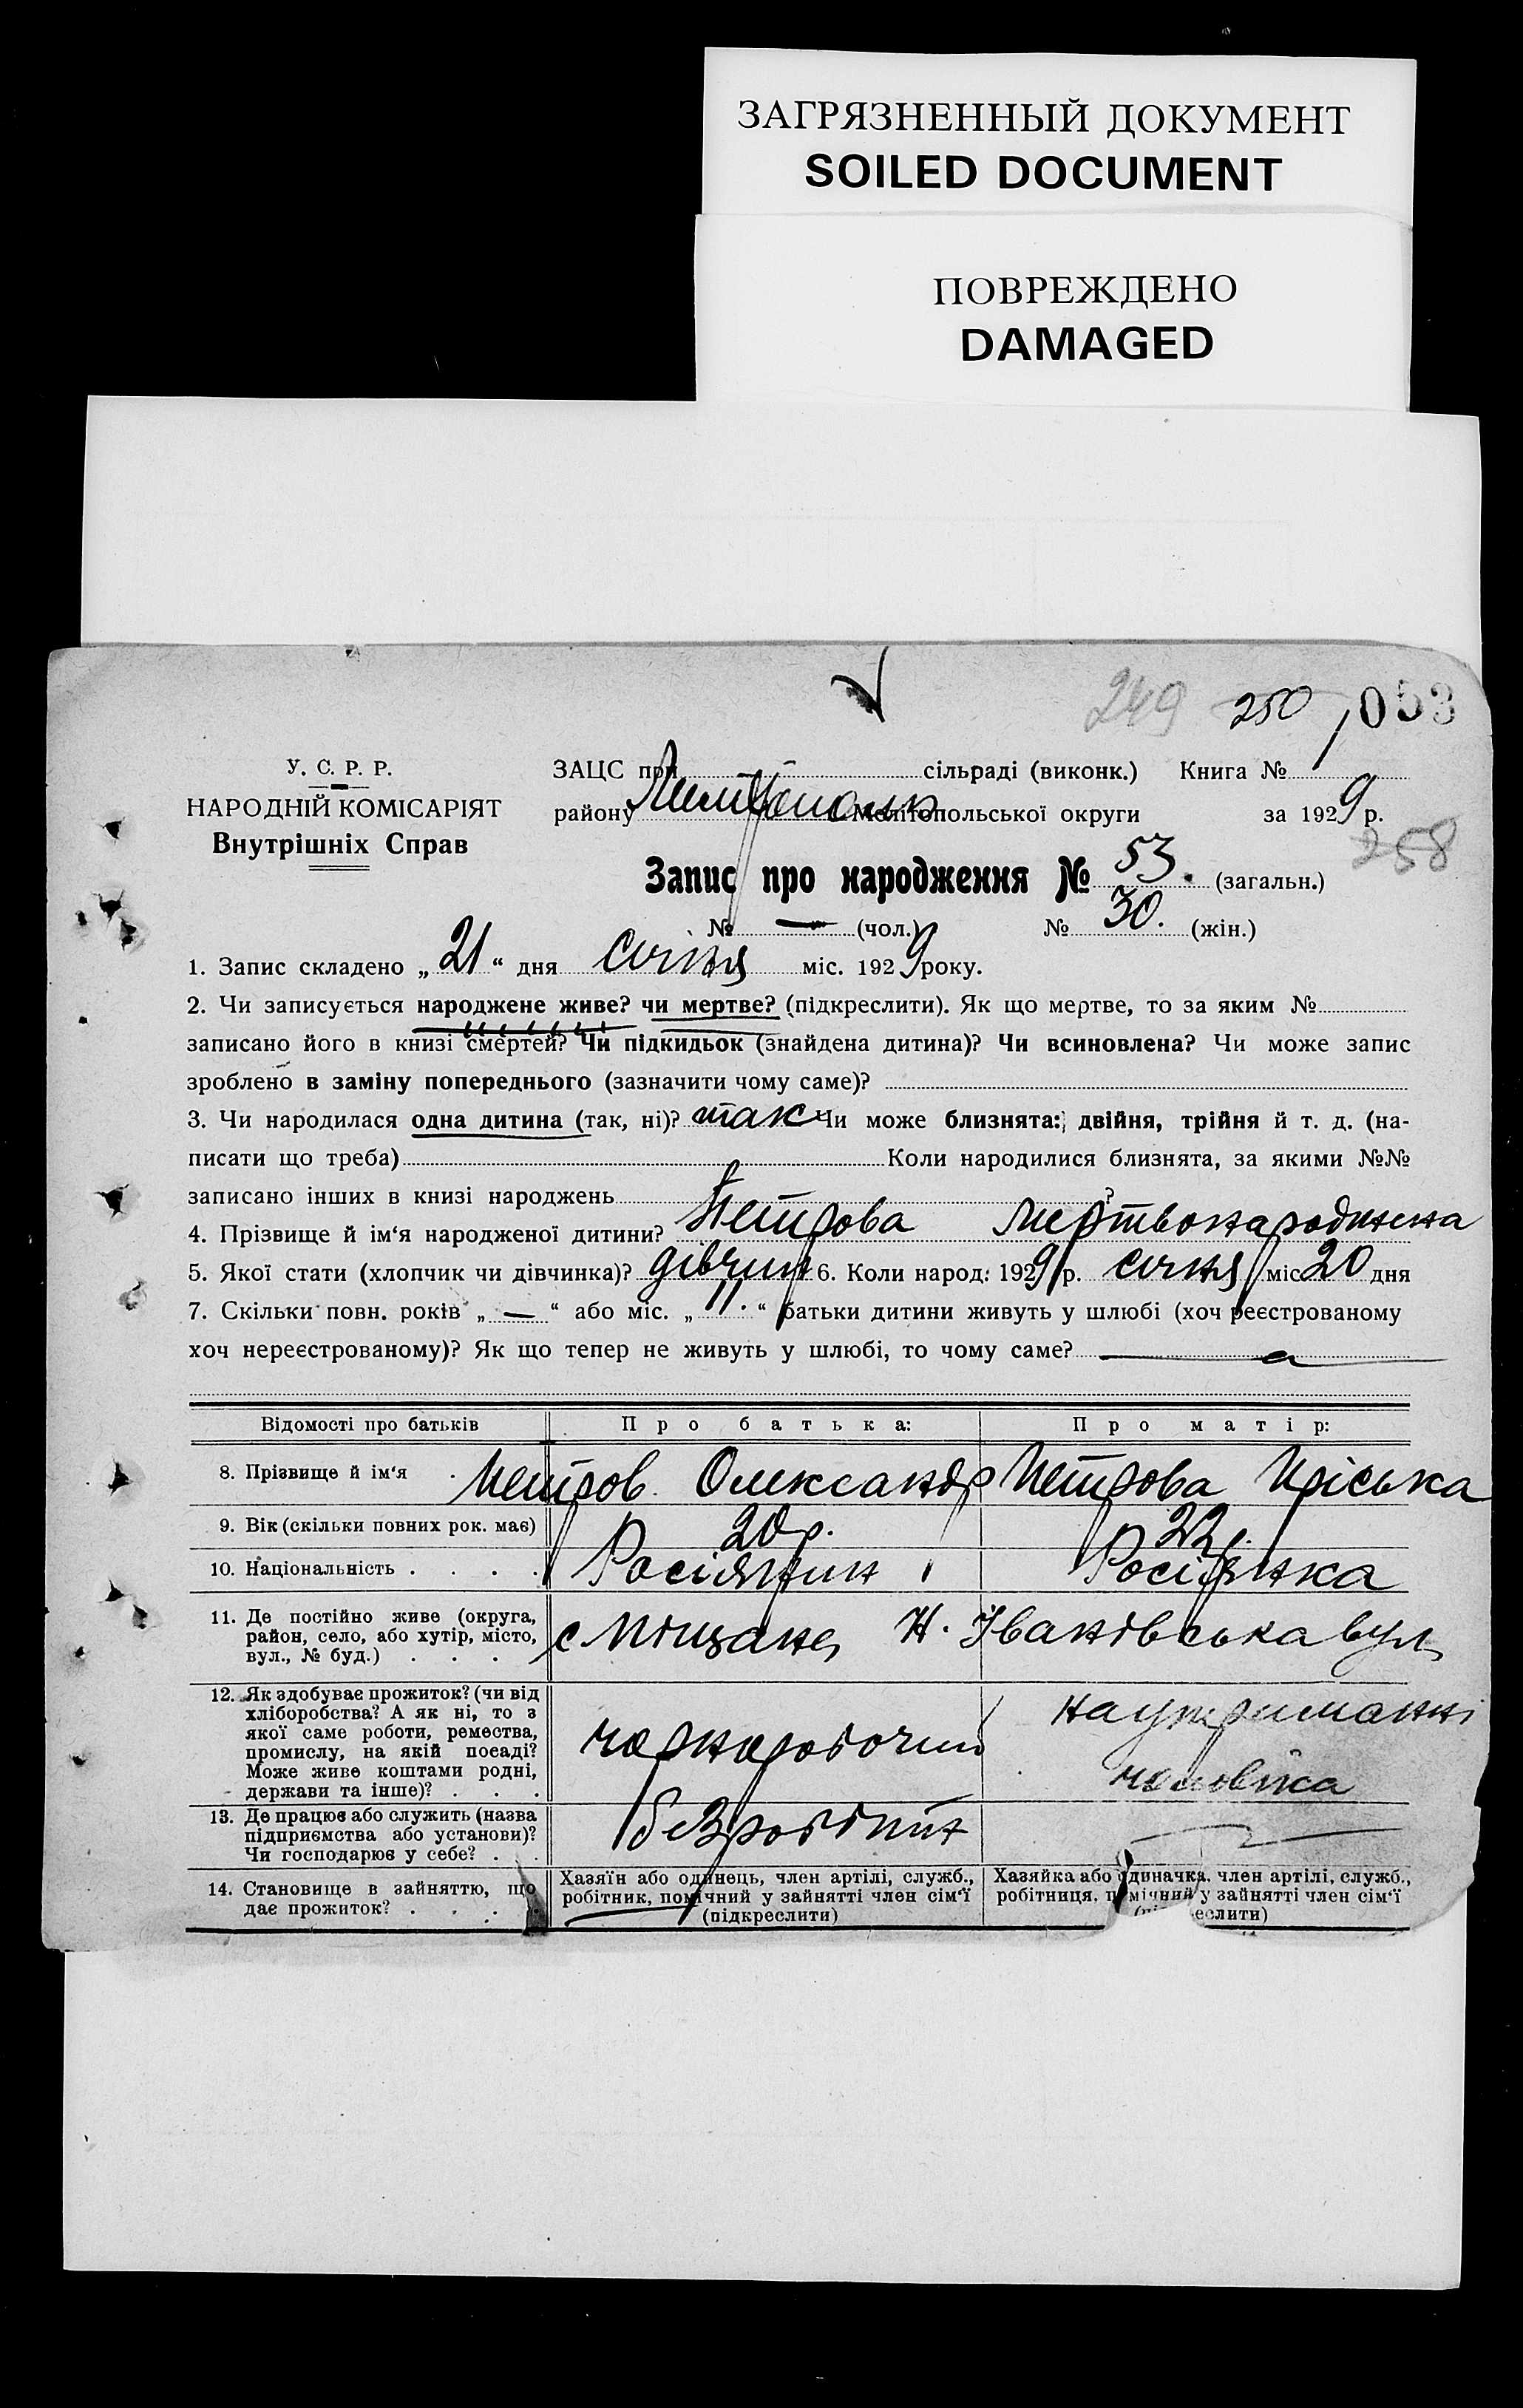 ЗАГРЯЗНЕННЫЙ ДОКУМЕНТ
SOILED DOCUMENT
ПОВРЕЖДЕНО
DAMAGED
249 250 053
У. С. Р. Р.
НАРОДНІЙ КОМІСАРІЯТ
Внутрішніх Справ
ЗАЦС при сільраді (виконк.) Книга №
району Мелітопольської округи за 1929 р.
258
Запис про народження № 53. (загальн.)
№ — (чол.) № 30. (жін.)
1. Запис складено „21“ дня січня міс. 1929 року.
2. Чи записується народжене живе? чи мертве? (підкреслити). Як що мертве, то за яким №
записано його в книзі смертей? Чи підкидьок (знайдена дитина)? Чи всиновлена? Чи може запис
зроблено в заміну попереднього (зазначити чому саме)?
3. Чи народилася одна дитина (так, ні)? так Чи може близнята: двійня, трійня й т. д. (на-
писати що треба) Коли народилися близнята, за якими №№
записано інших в книзі народжень ?
4. Прізвище й ім‘я народженої дитини? Петрова мертвонароджена
5. Якої стати (хлопчик чи дівчинка)? дівчин 6. Коли народ: 1929 р. січня міс 20 дня
7. Скільки повн. років „—“ або міс. „11.“ батьки дитини живуть у шлюбі (хоч реєстрованому
хоч нереєстрованому)? Як що тепер не живуть у шлюбі, то чому саме?
Відомості про батьків Про батька: Про матір:
8. Прізвище й ім‘я . Петров Олександр Петрова Пріська
9. Вік (скільки повних рок. має) 20 р. 22 р.
10. Національність . . . . Росіянин Росіянка
11. Де постійно живе (округа,
район, село, або хутір, місто,
вул., № буд.) . . . .
с Піщане, Н. Іванівська вул
12. Як здобуває прожиток? (чи від
хліборобства? А як ні, то з
якої саме роботи, ремества,
промислу, на якій посаді?
Може живе коштами родні,
держави та інше)? . . .
чорноробочий
на утриманні
чоловіка
13. Де працює або служить (назва
підприємства або установи)?
Чи господарює у себе? . .
безробітн
14. Становище в зайняттю, що
дає прожиток? . . . .
Хазяїн або одинець, член артілі, служб.,
робітник, помічний у зайнятті член сім‘ї
(підкреслити)
Хазяйка або одиначка, член артілі, служб.,
робітниця, помічний у зайнятті член сім‘ї
(підкреслити)